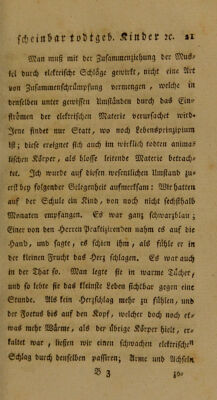 scheinbar todtgeb. Kinder ꝛc. 21
Man muß mit der Zusammenziehung der Mus-
kel durch elektrische Schläge gewirkt, nicht eine Art
von Zusammenschrümpfung vermengen, welche in
denselben unter gewissen Umständen durch das Ein-
strömen der elektrischen Materie verursachet wird.
Jene findet nur Statt, wo noch Lebensprinzipium
ist; diese ereignet sich auch im wirklich todten animas
lischen Körper, als blosse leitende Materie betrach-
tet. Ich wurde auf diesen wesentlichen Umstand zu-
erst bey folgender Gelegenheit aufmerksam: Wir hatten
auf der Schule ein Kind, von noch nicht sechsthalb
Monaten empfangen. Es war ganz schwarzblau;
Einer von den Herren Praktizirenden nahm es auf die
Hand, und sagte, es schien ihm, als fühle er in
der kleinen Frucht das Herz schlagen. Es war auch
in der That so. Man legte sie in warme Tücher,
und so lebte sie das kleinste Leben sichtbar gegen eine
Stunde. Als kein Herzschlag mehr zu fühlen, und
der Foetus bis auf den Kopf, welcher doch noch et-
was mehr Wärme, als der übrige Körper hielt, er-
kaltet war, liessen wir einen schwachen elektrischen
Schlag durch denselben passiren; Arme und Achseln
B 3